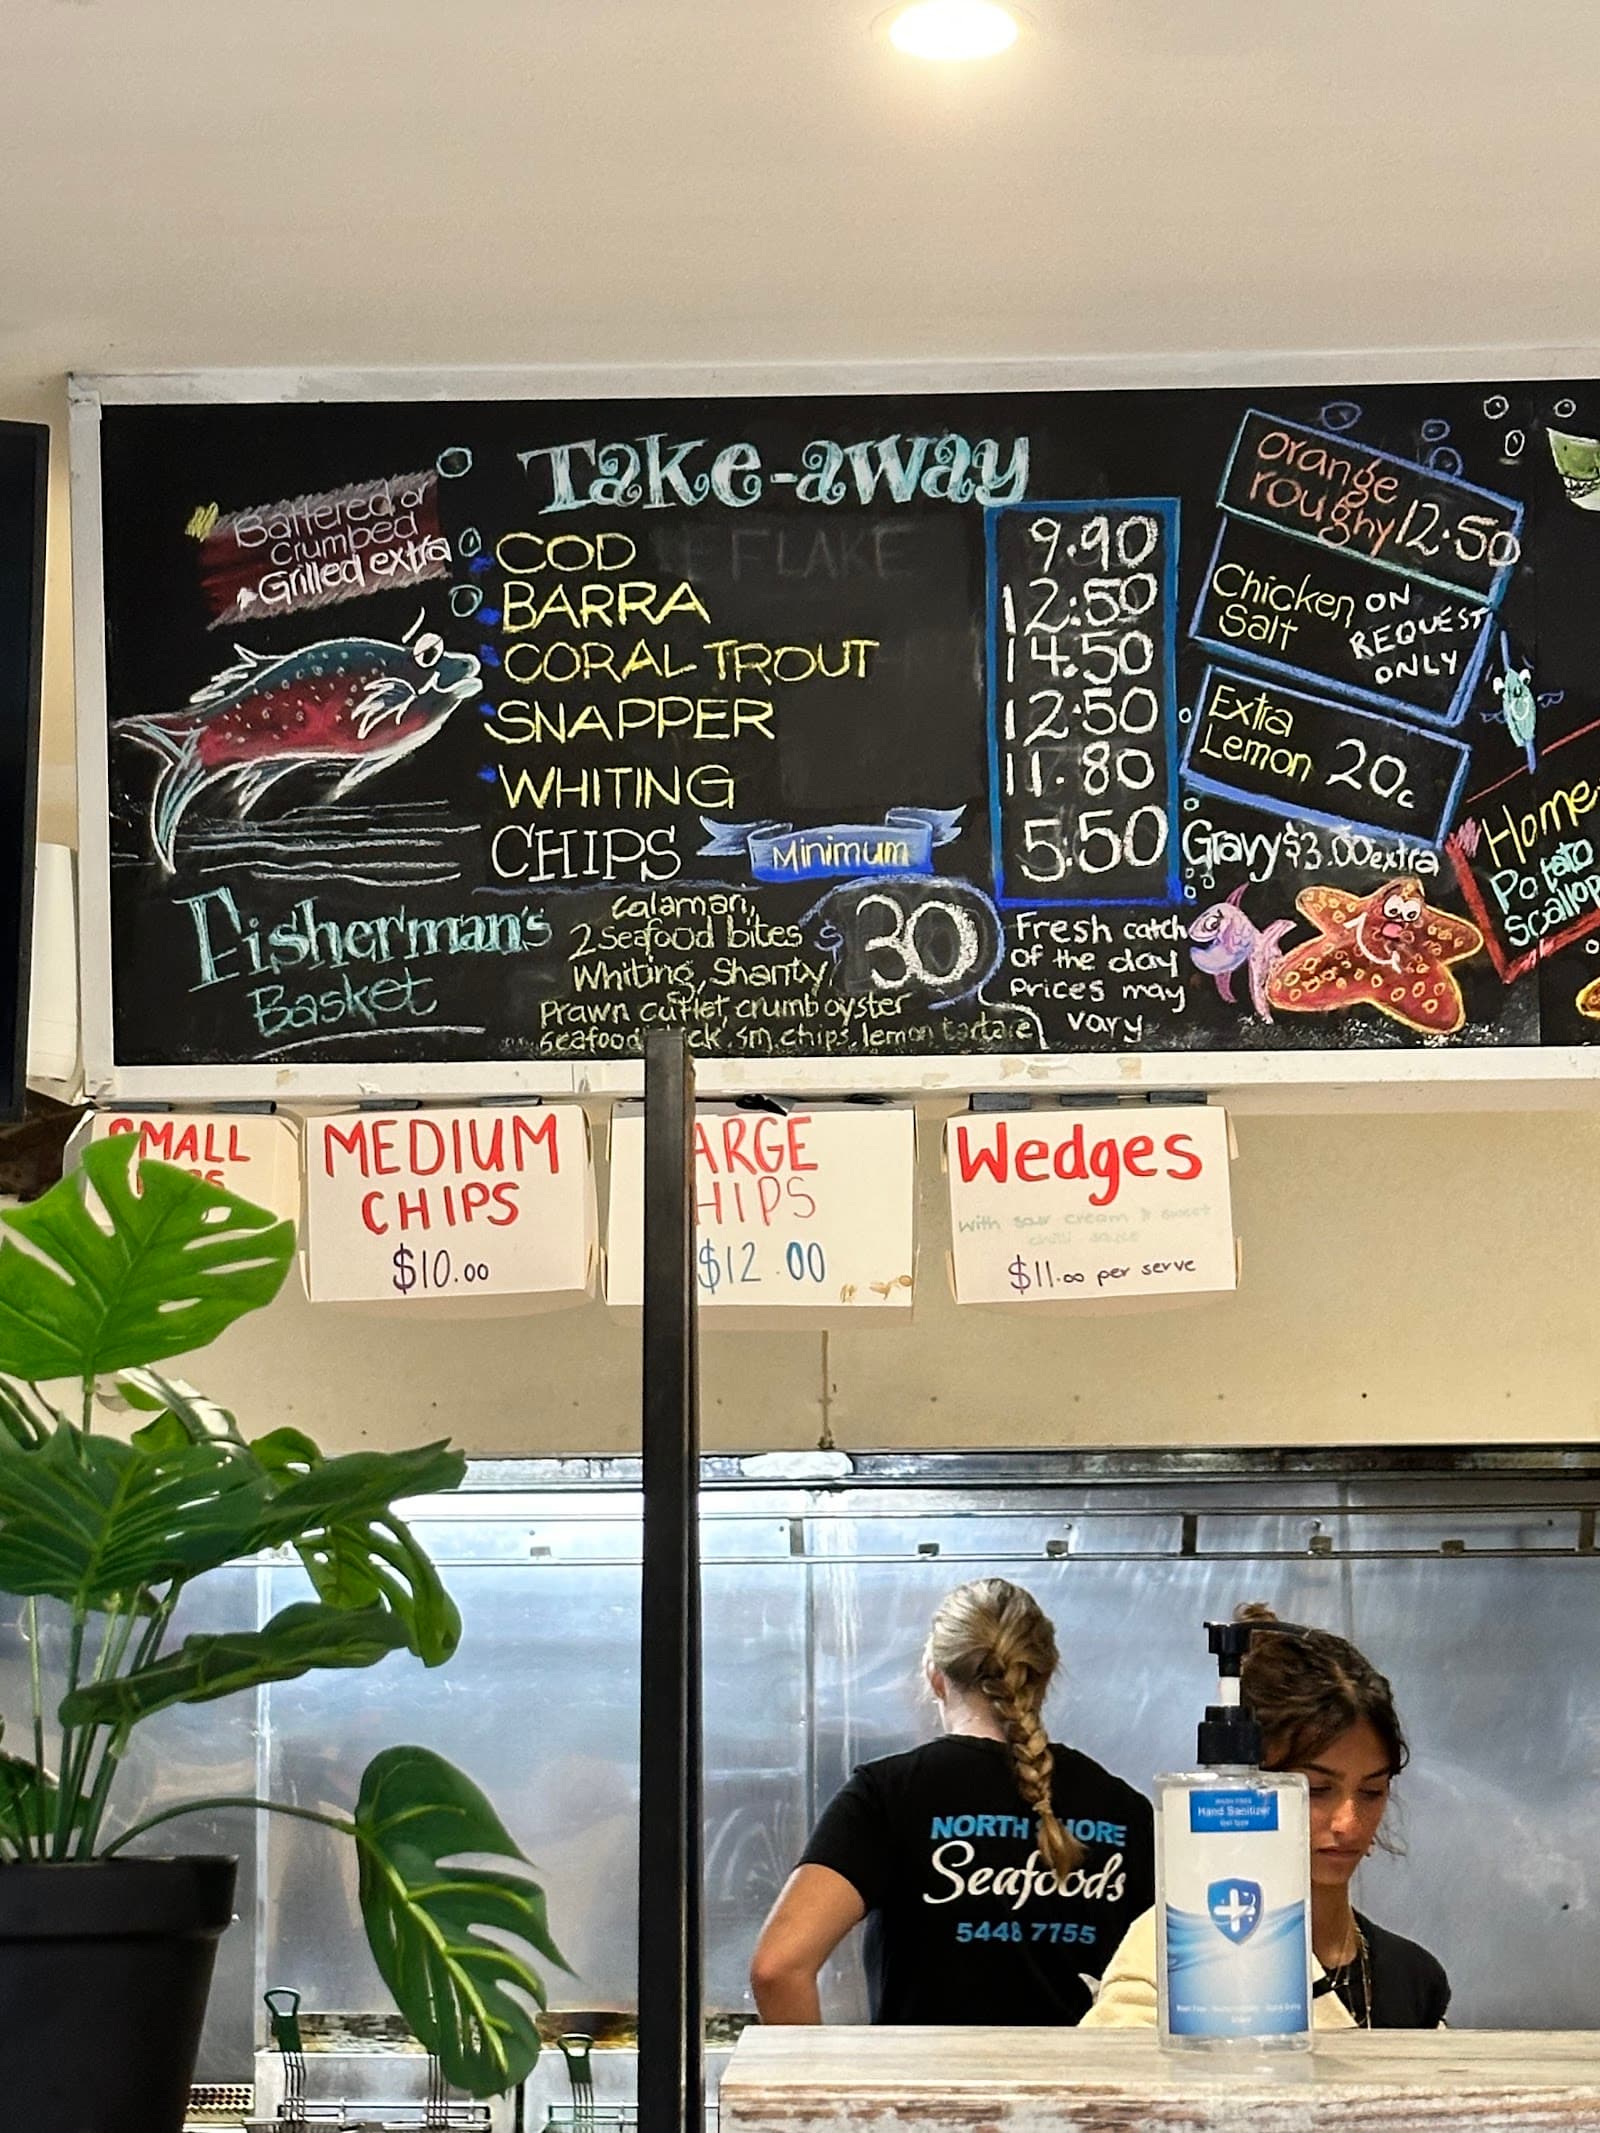 Take-away
Battered or
crumbed
Grilled extra
COD 9.90
FLAKE
BARRA 12.50
CORAL TROUT 14.50
SNAPPER 12.50
WHITING 11.80
CHIPS Minimum 5.50
Fisherman's
Basket
Calamari,
2 seafood bites
Whiting, Shanty,
Prawn cutlet, crumb oyster
seafood sm chips, lemon tartare
$30
Fresh catch
of the day
Prices may
vary
orange
roughy 12.50
Chicken
Salt
ON
REQUEST
ONLY
Extra
Lemon 20c
Gravy $3.00 extra
Home
Potato
Scallop
SMALL
MEDIUM
CHIPS
$10.00
ARGE
HIPS
$12.00
Wedges
with sour cream & sweet
chilli sauce
$11.00 per serve
NORTH HORE
Seafoods
5448 7755
Hand Sanitizer